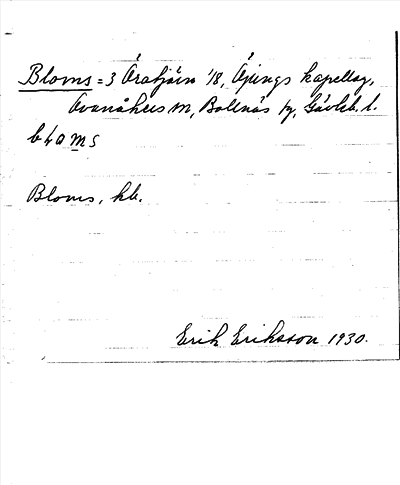 Bloms = 3 Öratjärn 1/8, Öjungs kapellag,
Ovanåkers m, Bollnäs tg, Gävleb. l.
blɑms
Bloms, kb.
Erik Eriksson 1930.